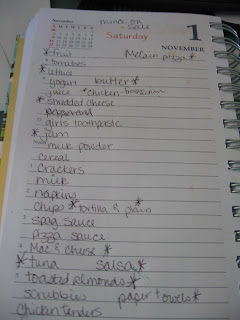 November
on
sale
1
Saturday
NOVEMBER
* fruit pizza *
* tomatoes
* lettuce
yogurt butter *
juice * chicken
* shredded cheese
girls toothpaste
* jam
milk powder
cereal
crackers
milk
napkins
chips * tortilla & plain *
spag sauce
pizza sauce
* Mac & cheese *
* tuna salsa *
* toasted almonds *
scrubbies paper towels *
chicken tenders